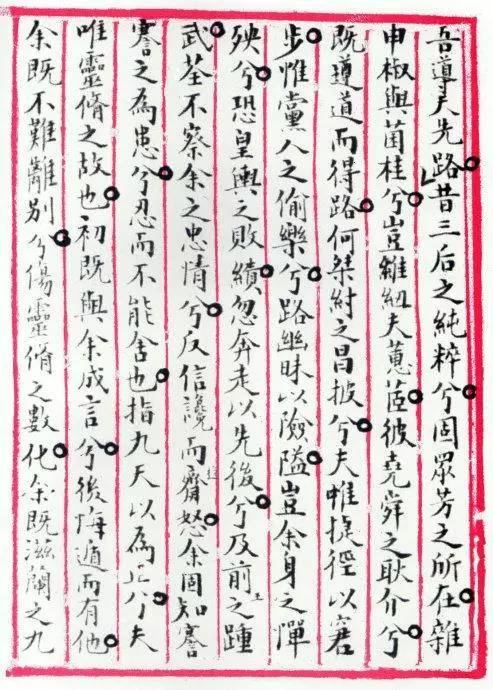 吾導夫先路昔三后之純粹兮固眾芳之所在雜
申椒與菌桂兮豈維紉夫蕙茝彼堯舜之耿介兮
既遵道而得路何桀紂之昌披兮夫唯捷徑以窘
步惟黨人之偷樂兮路幽昧以險隘豈余身之憚
殃兮恐皇輿之敗績忽奔走以先後兮及前王之踵
武荃不察余之忠情兮反信讒而齌怒余固知謇
謇之為患兮忍而不能舍也指九天以為正兮夫
唯靈脩之故也初既與余成言兮後悔遁而有他
余既不難離別兮傷靈脩之數化余既滋蘭之九